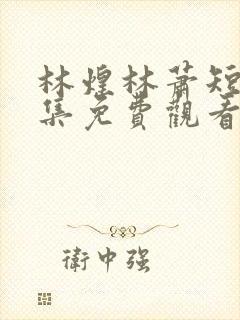 林煌林蕭短
集免費觀看
衛中强